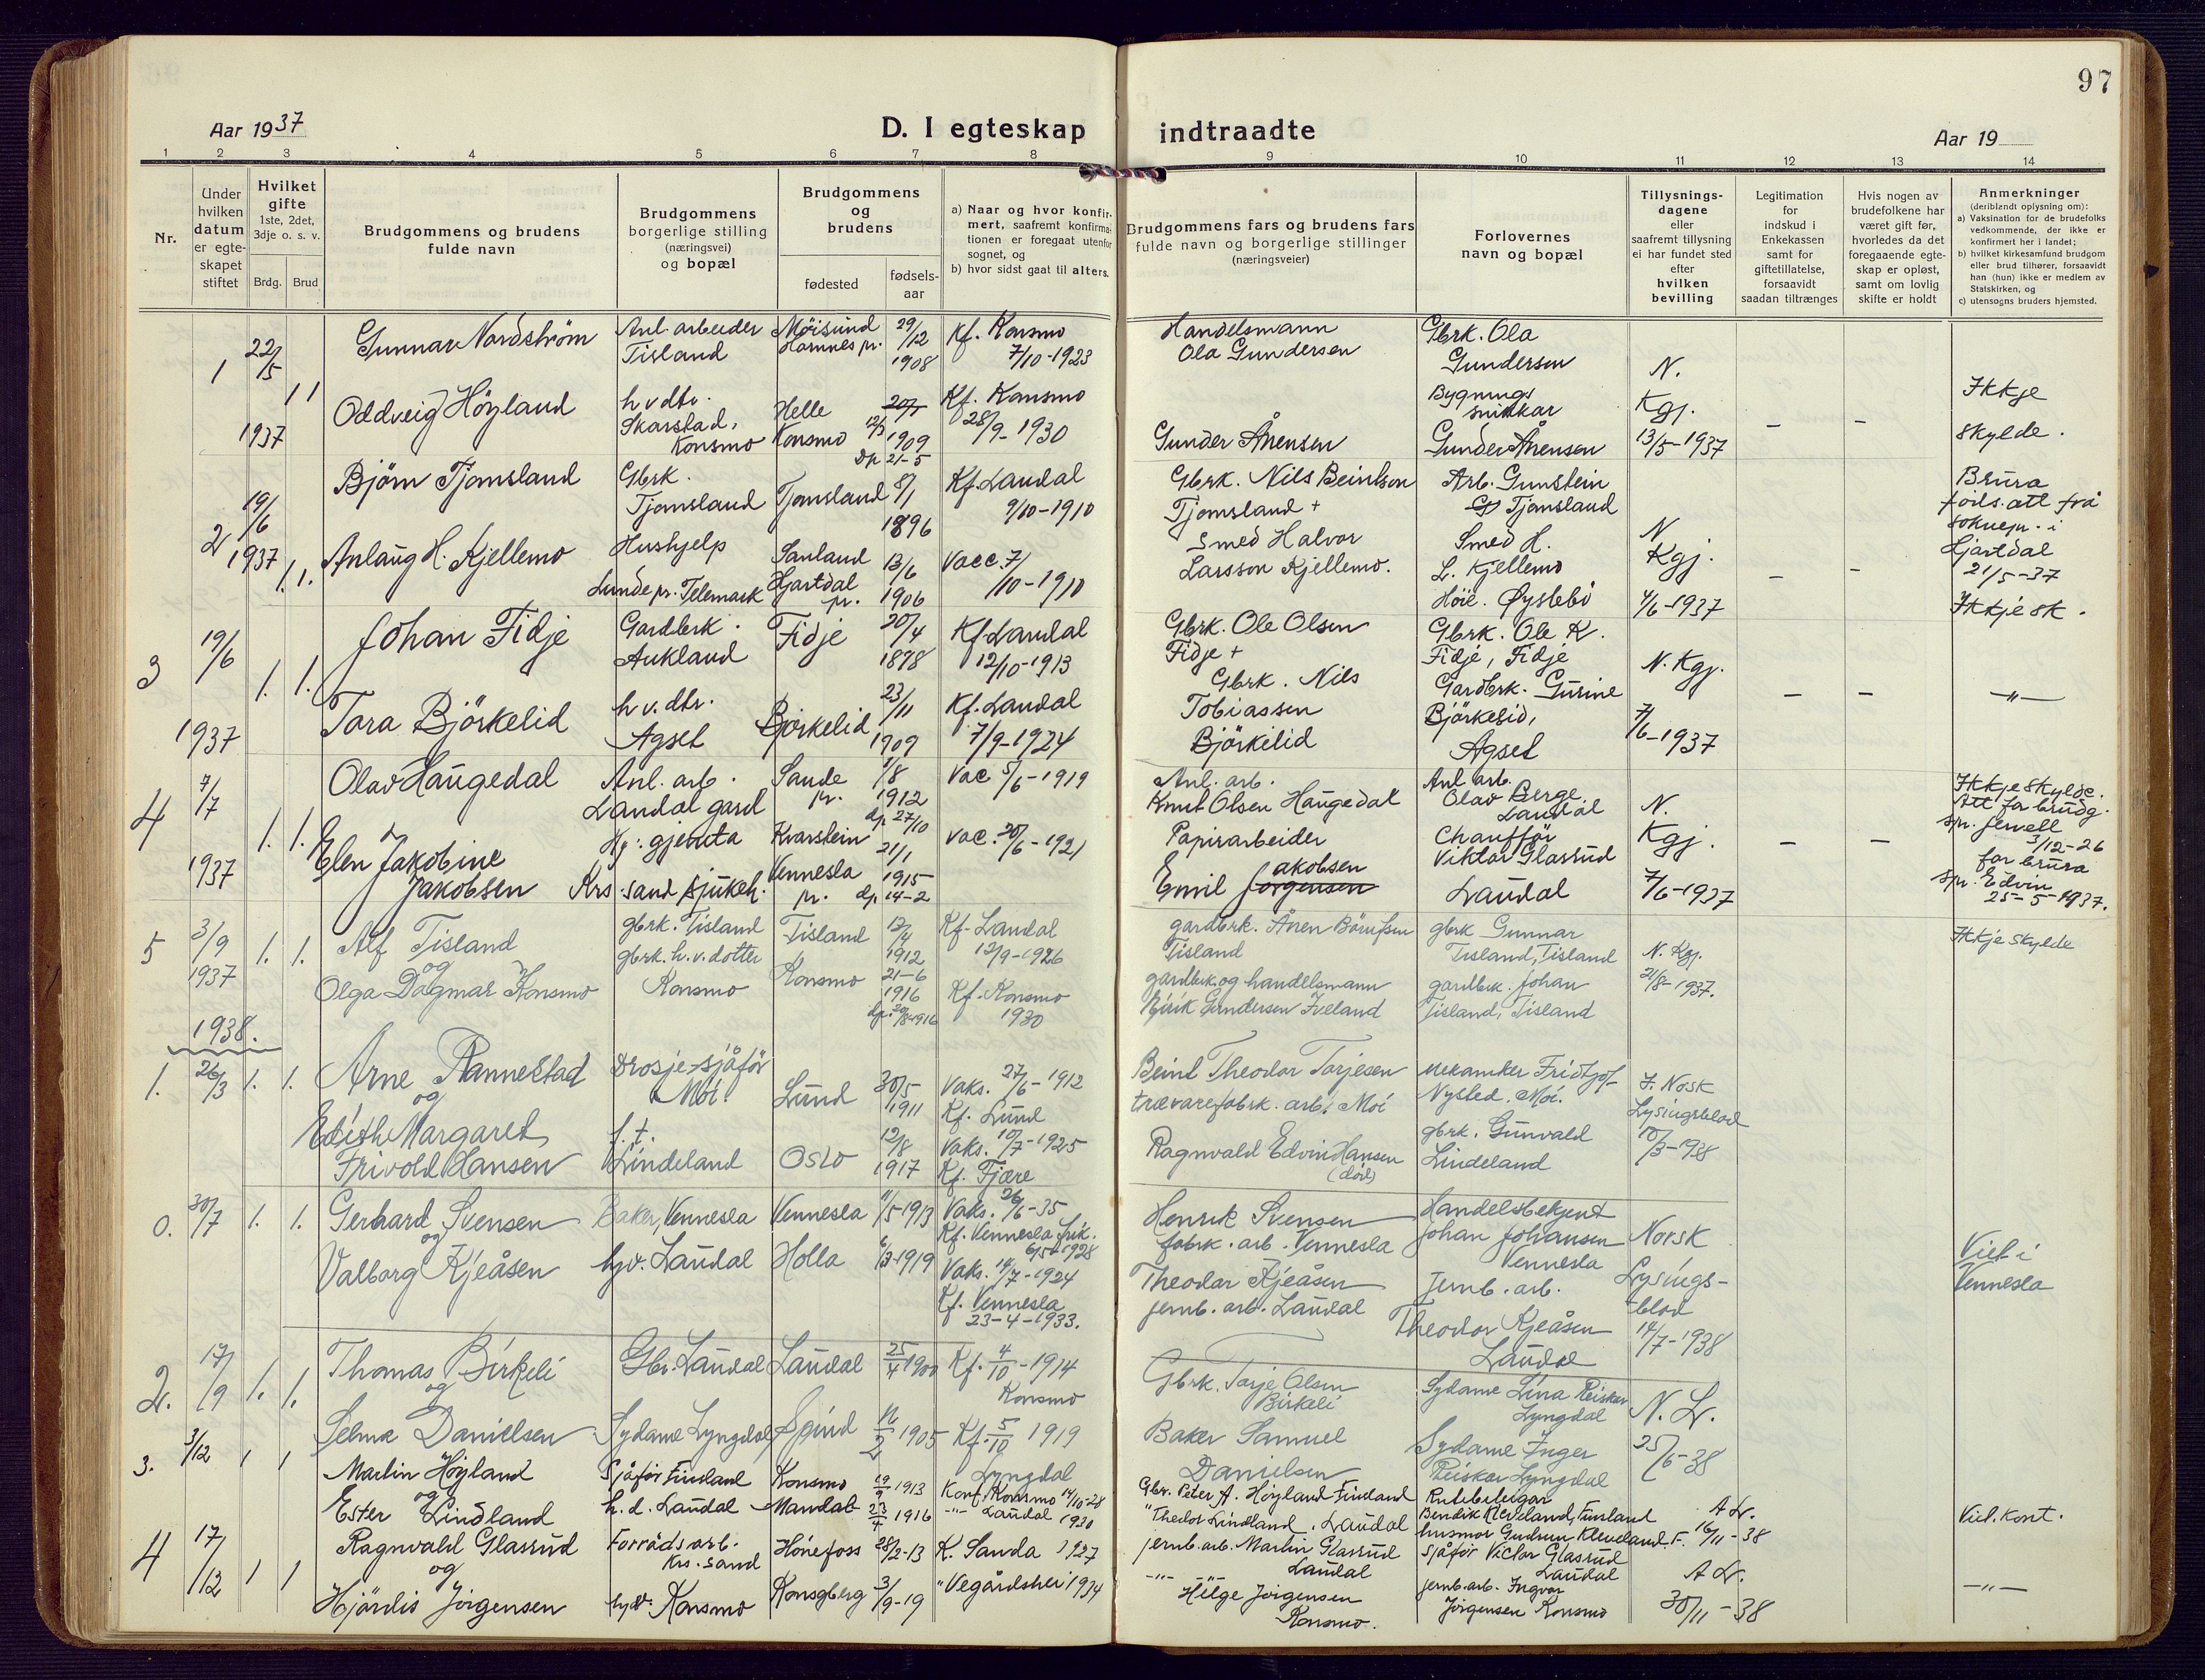 97
Aar 1937
D. I egteskap
indtraadte
Aar 19
1 2 3 4 5 6 7 8 9 10 11 12 13 14
Nr.
Under
hvilken
datum
er egte-
skapet
stiftet
Hvilket
gifte
1ste, 2det,
3dje o. s. v.
Brdg. Brud
Brudgommens og brudens
fulde navn
Brudgommens
borgerlige stilling
(næringsvei)
og bopæl
Brudgommens
og
brudens
fødested
fødsels-
aar
a) Naar og hvor konfir-
mert, saafremt konfirma-
tionen er foregaat utenfor
sognet, og
b) hvor sidst gaat til alters.
Brudgommens fars og brudens fars
fulde navn og borgerlige stillinger
(næringsveier)
Forlovernes
navn og bopæl
Tillysnings-
dagene
eller
saafremt tillysning
ei har fundet sted
efter
hvilken
bevilling
Legitimation
for
indskud i
Enkekassen
samt for
giftetillatelse,
forsaavidt
saadan tiltrænges
Hvis nogen av
brudefolkene har
været gift før,
hvorledes da det
foregaaende egte-
skap er opløst,
samt om lovlig
skifte er holdt
Anmerkninger
(deriblandt oplysning om):
a) Vaksination for de brudefolks
vedkommende, der ikke er
konfirmert her i landet;
b) hvilket kirkesamfund brudgom
eller brud tilhører, forsaavidt
han (hun) ikke er medlem av
Statskirken, og
c) utensogns bruders hjemsted.
1
22/5
1937
1 1
Gunnar Nordstrøm
Anl. arbeider
Tisland
Möisund
Hornnes pr.
29/12
1908
Kf. Konsmo
7/10-1923
Handelsmann
Ola Gundersen
Gbrk. Ola
Gundersen
N.
Kgj.
13/5-1937
Ikkje
skylde.
Oddveig Höyland
h v dtr.
Skarstad,
Konsmo
Helle
Konsmo
1909
dp 21-5
Kf. Konsmo
28/9-1930
Gunder Ånensen
Bygnings
snikkar
Gunder Ånensen
2
19/6
1937
1. 1.
Björn Tjomsland
Gbrk.
Tjomsland
Tjomsland
8/1
1896
Kf. Laudal
9/10-1910
Gbrk. Nils Beintson
Tjomsland +
Arb. Gunstein
Tjomsland
N
Kgj.
4/6-1937
Brura
föds.att frå
soknepr. i
Hjartdal
21/5-37
Ikkje sk.
Anlaug H. Kjellemo
Hushjelp
Lunde pr. Telemark
Sauland
Hjartdal
pr.
13/6
1906
Vacc. 7/
10-1910
Smed Halvor
Larsson Kjellemo.
Smed H.
L. Kjellemo
Höie. Øyslebö
3
19/6
1937
1. 1.
Johan Fidje
Gardbrk.
Aukland
Fidje
20/4
1898
Kf. Laudal
12/10-1913
Gbrk. Ole Olsen
Fidje +
Gbrk. Ole K.
Fidje, Fidje
N. Kgj.
7/6-1937
-"-
Tora Björkelid
h v. dtr.
Agset
Björkelid
23/11
1909
Kf. Laudal
7/9-1924
Gbrk. Nils
Tobiassen
Björkelid
Gardbrk. Gurine
Björkelid,
Agset
4
7/7
1937
1. 1.
Olav Haugedal
Anl. arb.
Laudal gard
Sande
pr.
1/8
1912
dp 27/10
Vac 5/6-1919
Anl. arb.
Knut Olsen Haugedal
Anl. arb.
Olav Berge
Laudal
N.
Kgj.
7/6-1937
Ikkje skylde.
Att for brudg.
spr. Jewell
3/12-26
for brura
spr. Edvin
25-5-1937.
Elen Jakobine
Jakobsen
Kj. gjenta
Krs. sand sjukeh.
Kvarstein
Vennesla
pr.
21/1
1915
dp. 14-2
Vac. 20/6-1921
Papirarbeider
Emil Jakobsen
Chauffør
Viktor Glasrud
Laudal
5
3/9
1937
1. 1.
Alf Tisland
og
Olga Dagmar Konsmo
gbrk. Tisland
gbrk. h. v. dotter
Konsmo
Tisland
Konsmo
12/4
1912
21-6
1916
Kf. Laudal
12/9-1926
Kf. Konsmo
1930
gardbrk. Ånen Börufsen
Tisland
gardbrk. og handelsmann
Eirik Gundersen Iveland
gbrk Gunnar
Tisland, Tisland
gardbrk. Johan
Tisland, Tisland
N. Kgj.
21/8-1937.
Ikkje skylde
1938.
1.
26/3
1. 1.
Arne Rannestad
og
Edith Margaret
Frivold Hansen
Drosje-sjåför
Moi.
f. t.
Lindeland
Lund
Oslo
30/5
1911
12/8
1917
Vaks. 27/6-1912
Kf. Lund
Vaks. 10/7-1925
Kf. Fjære
Beint Theodor Torjesen
trævarefabrk. arb. Moi
Ragnvald Edvin Hansen
(död)
Mekaniker Fridtjof
Nysted. Moi.
gbrk. Gunvald
Lindeland
I. Norsk
Lysingsblad
10/3-1938
0.
30/7
1. 1.
Gerhard Svensen
og
Valborg Kjeåsen
Baker, Vennesla
hjv. Laudal
Vennesla
Holla
11/5-1913
6/3-1919
Vaks. 26/6-35
Kf. Vennesla Frik.
6/5-1928
Vaks. 14/7-1924
Kf. Vennesla
23-4-1933.
Henrik Svensen
fabrk. arb. Vennesla
Theodor Kjeåsen
jernb. arb. Laudal
Handelsbetjent
Johan Johansen
Vennesla
Jernb. arb.
Theodor Kjeåsen
Laudal
Norsk
Lysings-
-blad
14/7-1938
Viet i
Vennesla
2.
17/9
1. 1.
Thomas Birkeli
og
Selma Danielsen
Gbr. Laudal
Sydame Lyngdal
Laudal
Spind
25/4 1900
11/2 1905
Kf. 4/10-1914
Konsmo
Kf. 5/10 1919
Lyngdal
Gbrk. Torje Olsen
Birkeli
Baker Samuel
Danielsen
Sydame Lina Reiskar
Lyngdal
Sydame Inger
Reiskar Lyngdal
N. L.
25/6-38
3.
3/12
1 1
Martin Höyland
og
Ester Lindland
Sjåför Finsland
h. d. Laudal
Konsmo
Mandal
19/9 1913
23/4 1916
Konf. Konsmo 14/10-28
-"- Laudal 1930
Gbr. Peter A. Höyland Finsland
"Theodor Lindland. Laudal
Rutebileigar
Bendik Kleveland, Finsland
husmor Gudrun Kleveland. F.
A L.
16/11-38
Viel. kont.
4
17/12
1 1
Ragnvald Glasrud
og
Hjördis Jörgensen
Forrådsarb.
Krs. sand
hjv. Konsmo
Hönefoss
Konsgberg
28/2-13
3/9-19
K. Sanda 1927
" Vegårdshei 1934
jernb. arb. Martin Glasrud
Laudal
-"- -"-
Helge Jörgensen
Konsmo.
Sjåför Victor Glasrud
Laudal
jernb. arb. Ingvar
Jörgensen Konsmo
A L.
30/11-38
-"-